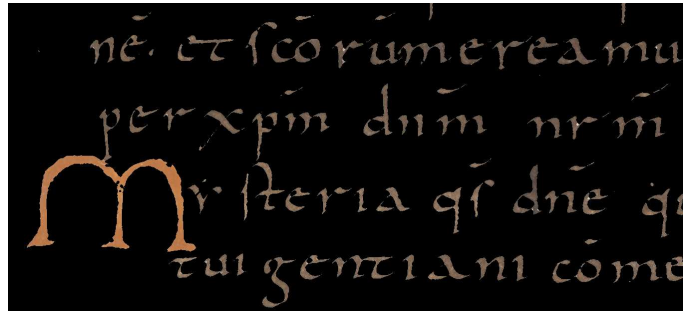 nē. et scōrū mereamu
per xp̄m dn̄m nr̄m
Mysteria qs̄ dn̄e q
tui gentiani cōme